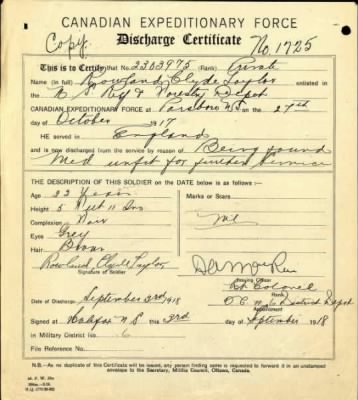 CANADIAN EXPEDITIONARY FORCE
Copy Discharge Certificate No. 1725
This is to Certify that No. 2303975 (Rank) Private
Name (in full) Rowland Clyde Taylor enlisted in
N S Reg't & Forestry Depot
CANADIAN EXPEDITIONARY FORCE at Parrsboro NS on the 27th
day of October 1917
HE served in England
and is now discharged from the service by reason of Being found
Med unfit for further Service
THE DESCRIPTION OF THIS SOLDIER on the DATE below is as follows:—
Age 22 Years Marks or Scars
Height 5 Feet 11 Ins
Complexion
Eyes Grey
Hair Brown
Rowland Clyde Taylor
Signature of Soldier
Issuing Officer
Lt Colonel
Rank
Date of Discharge September 3rd 1918 O.C. No 6 District Depot
Appointment
Signed at Halifax N S this 3rd day of September 1918
in Military District No. 6
File Reference No.
N.B.—As no duplicate of this Certificate will be issued, any person finding same is requested to forward it in an unstamped
envelope to the Secretary, Militia Council, Ottawa, Canada.